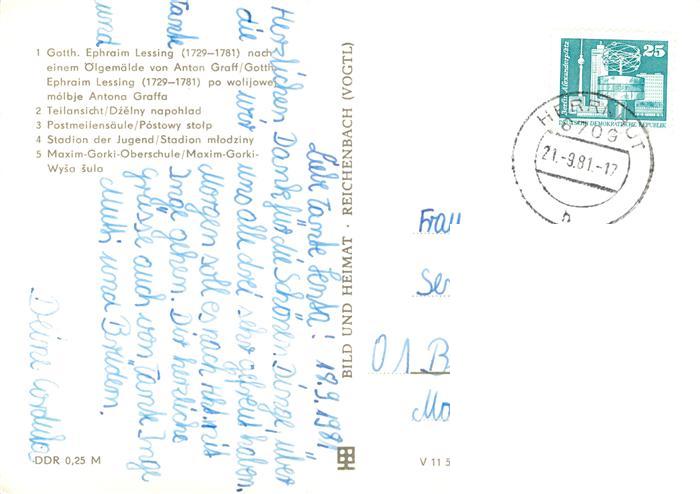 1 Gotth. Ephraim Lessing (1729—1781) nach
einem Ölgemälde von Anton Graff/Gotth.
Ephraim Lessing (1729—1781) po wolijowej
mólbje Antona Graffa
2 Teilansicht/Dźělny napohlad
3 Postmeilensäule/Póstowy stołp
4 Stadion der Jugend/Stadion młodziny
5 Maxim-Gorki-Oberschule/Maxim-Gorki-
Wyša šula
DDR 0,25 M
BILD UND HEIMAT · REICHENBACH (VOGTL)
V 11 5
25
Berlin, Alexanderplatz
DEUTSCHE DEMOKRATISCHE REPUBLIK
HERRNHUT
8709
21.-9.81.-17
h
Liebe Tante 19.9.1981
Herzlichen Dank für die Schönen Dinge, über
die wir
uns alle drei sehr gefreut haben.
Morgen soll es nach mit
Tante
Inge gehen. Dir herzliche
Grüsse auch von Tante Inge
und
Mutti und Brüdern.
Deine Cordula
Frau
01 B